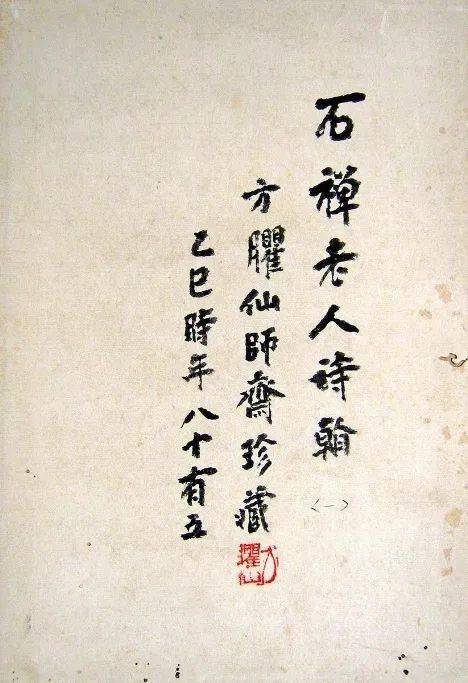 石禅老人詩翰
(一)
方臞仙師齋珍藏
乙巳時年八十有五
方臞仙